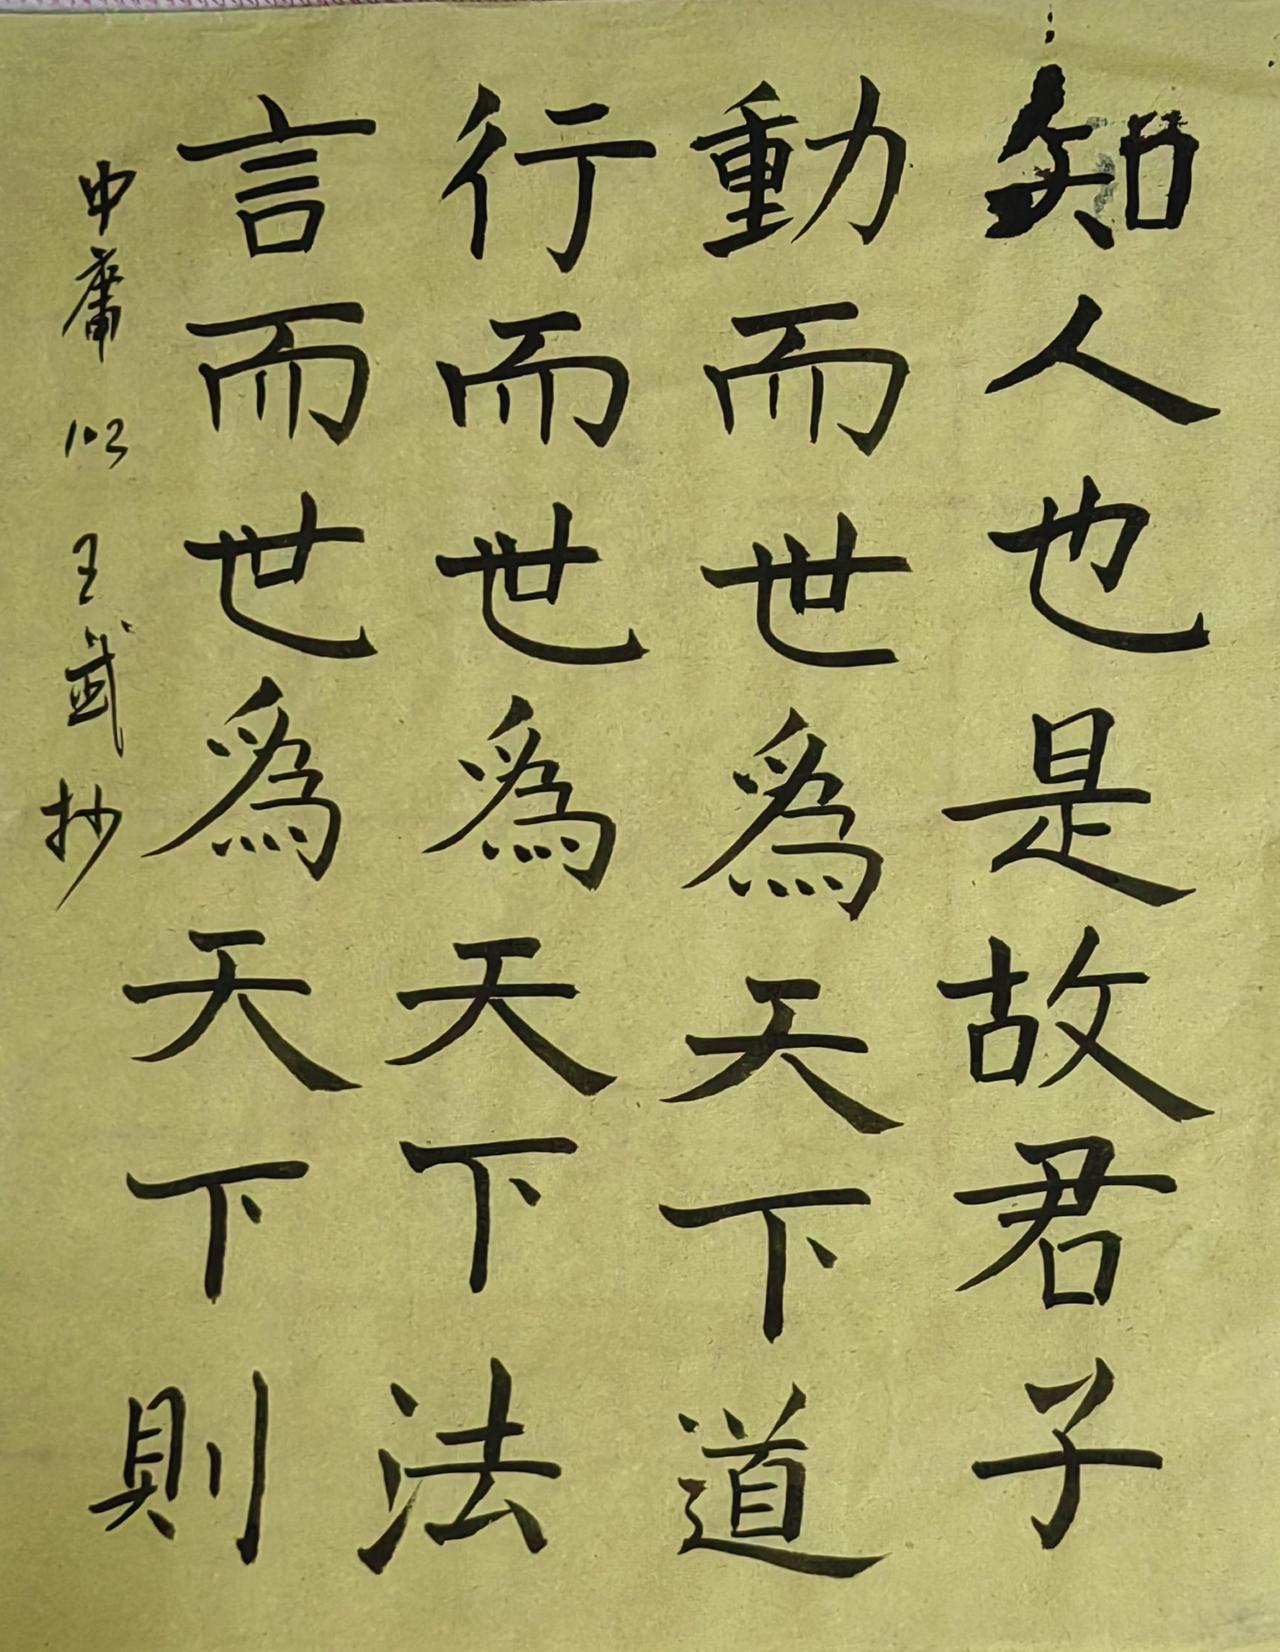 知人也是故君子
動而世為天下道
行而世為天下法
言而世為天下則
中庸 102 王武抄